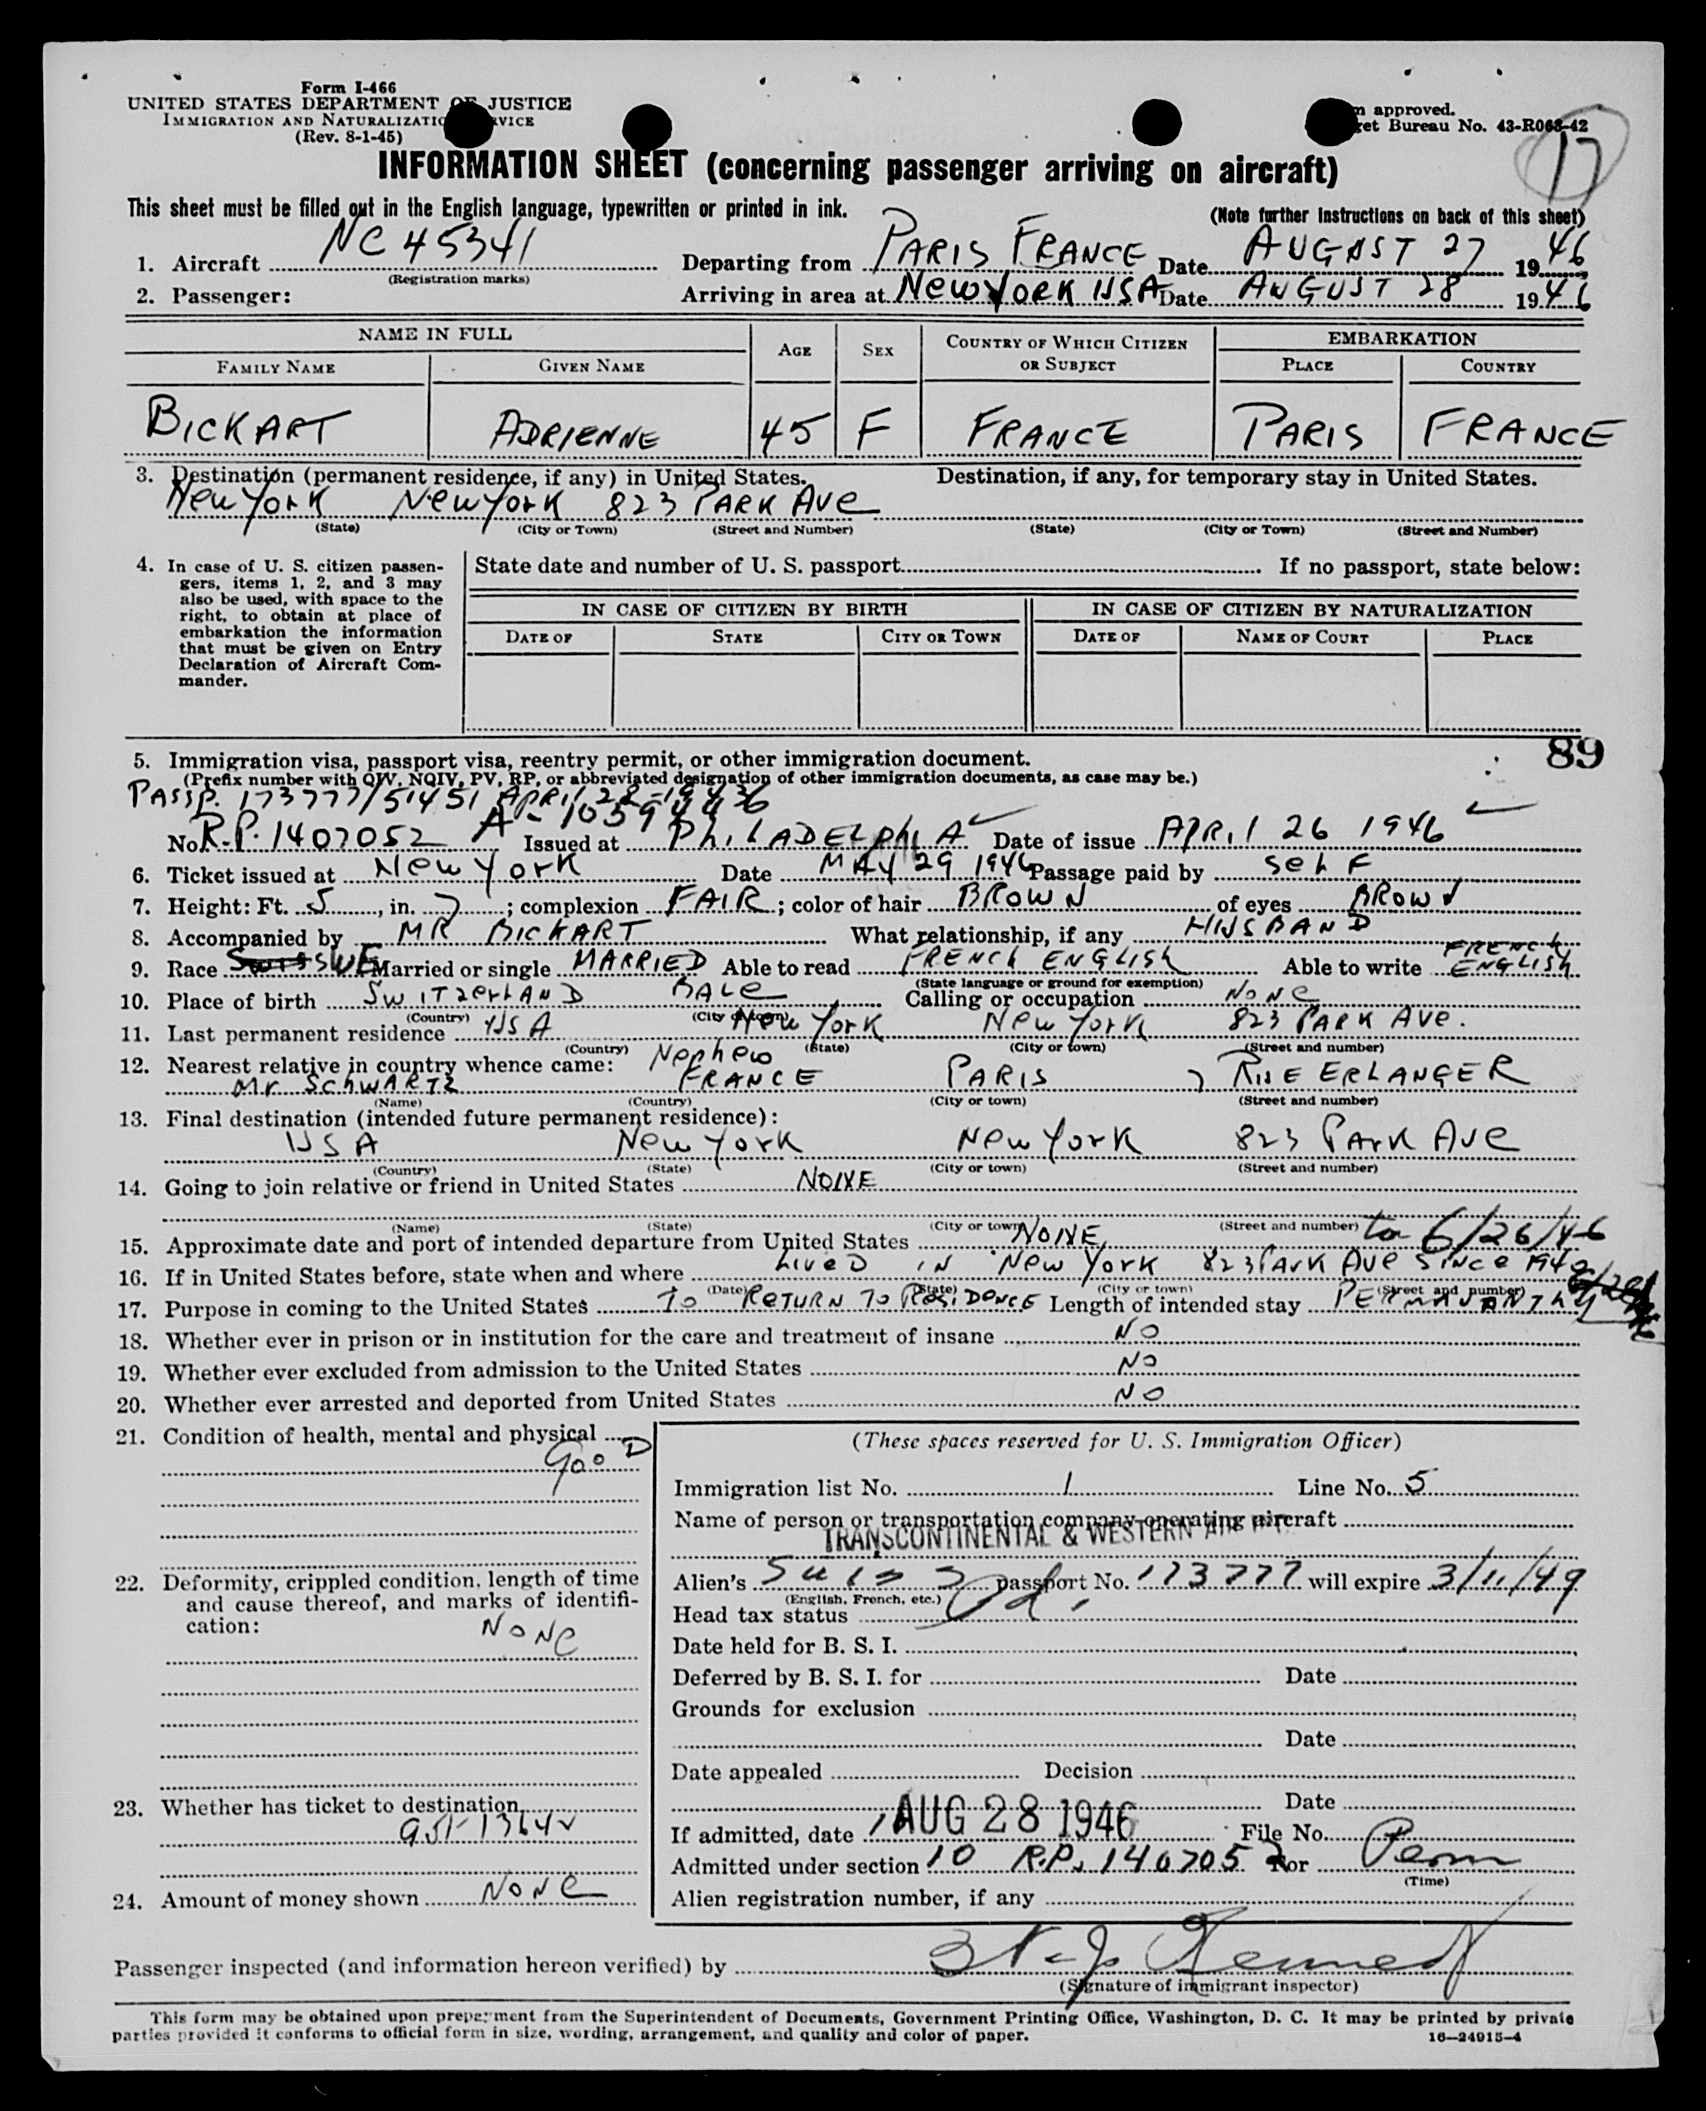 Form I-466
UNITED STATES DEPARTMENT OF JUSTICE
IMMIGRATION AND NATURALIZATION SERVICE
(Rev. 8-1-45)
approved.
Bureau No. 43-R068-42
17
INFORMATION SHEET (concerning passenger arriving on aircraft)
This sheet must be filled out in the English language, typewritten or printed in ink.
(Note further instructions on back of this sheet)
1. Aircraft NC 45341 Departing from PARIS FRANCE Date AUGUST 27 1946
(Registration marks)
2. Passenger: Arriving in area at NEW YORK USA Date AUGUST 28 1946
NAME IN FULL AGE SEX COUNTRY OF WHICH CITIZEN OR SUBJECT EMBARKATION
FAMILY NAME GIVEN NAME PLACE COUNTRY
BICKART ADRIENNE 45 F FRANCE PARIS FRANCE
3. Destination (permanent residence, if any) in United States. Destination, if any, for temporary stay in United States.
New York New York 823 PARK AVE
(State) (City or Town) (Street and Number) (State) (City or Town) (Street and Number)
4. In case of U. S. citizen passengers, items 1, 2, and 3 may also be used, with space to the right, to obtain at place of embarkation the information that must be given on Entry Declaration of Aircraft Commander.
State date and number of U. S. passport If no passport, state below:
IN CASE OF CITIZEN BY BIRTH IN CASE OF CITIZEN BY NATURALIZATION
DATE OF STATE CITY OR TOWN DATE OF NAME OF COURT PLACE
89
5. Immigration visa, passport visa, reentry permit, or other immigration document.
(Prefix number with QIV, NQIV, PV, RP, or abbreviated designation of other immigration documents, as case may be.)
PASSP. 173777/51451 APRIL
No. R.P. 1407052 Issued at PHILADELPHIA Date of issue APRIL 26 1946
6. Ticket issued at New York Date MAY 29 1946 Passage paid by SELF
7. Height: Ft. 5, in. 7; complexion FAIR; color of hair BROWN of eyes BROWN
8. Accompanied by MR BICKART What relationship, if any HUSBAND
9. Race Married or single MARRIED Able to read FRENCH ENGLISH Able to write FRENCH ENGLISH
(State language or ground for exemption)
10. Place of birth SWITZERLAND BALE Calling or occupation NONE
(Country) (City or town)
11. Last permanent residence USA New York New York 823 PARK AVE.
(Country) (State) (City or town) (Street and number)
12. Nearest relative in country whence came: Nephew
Mr SCHWARTZ FRANCE PARIS 7 RUE ERLANGER
(Name) (Country) (City or town) (Street and number)
13. Final destination (intended future permanent residence):
USA New York New York 823 PARK AVE
(Country) (State) (City or town) (Street and number)
14. Going to join relative or friend in United States NONE
(Name) (State) (City or town) (Street and number)
15. Approximate date and port of intended departure from United States NONE to 6/26/46
16. If in United States before, state when and where LIVED IN New York 823 PARK AVE SINCE
(Date) (State) (City or town) (Street and number)
17. Purpose in coming to the United States TO RETURN TO RESIDENCE Length of intended stay PERMANANTLY
18. Whether ever in prison or in institution for the care and treatment of insane NO
19. Whether ever excluded from admission to the United States NO
20. Whether ever arrested and deported from United States NO
21. Condition of health, mental and physical GOOD
22. Deformity, crippled condition, length of time and cause thereof, and marks of identification: NONE
23. Whether has ticket to destination
24. Amount of money shown NONE
(These spaces reserved for U. S. Immigration Officer)
Immigration list No. 1 Line No. 5
Name of person or transportation company operating aircraft
TRANSCONTINENTAL & WESTERN AIR
Alien's Swiss passport No. 173777 will expire 3/11/49
(English, French, etc.)
Head tax status
Date held for B. S. I.
Deferred by B. S. I. for Date
Grounds for exclusion
Date
Date appealed Decision
Date
If admitted, date AUG 28 1946 File No.
Admitted under section 10 R.P. 1407052 for Perm
(Time)
Alien registration number, if any
Passenger inspected (and information hereon verified) by
(Signature of immigrant inspector)
This form may be obtained upon prepayment from the Superintendent of Documents, Government Printing Office, Washington, D. C. It may be printed by private
parties provided it conforms to official form in size, wording, arrangement, and quality and color of paper. 16—24915-4